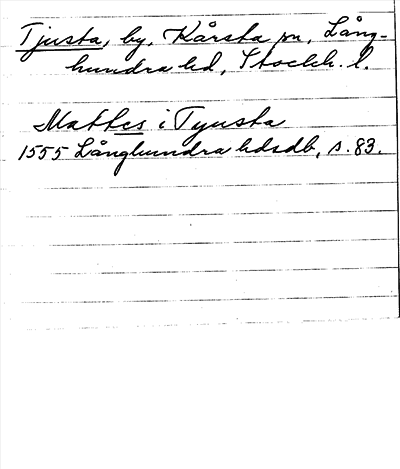 Tjusta, by, Kårsta sn, Lång-
hundra hd, Stockh. l.
Mathes i Tyusta
1555 Långhundra hdsdb, s. 83.